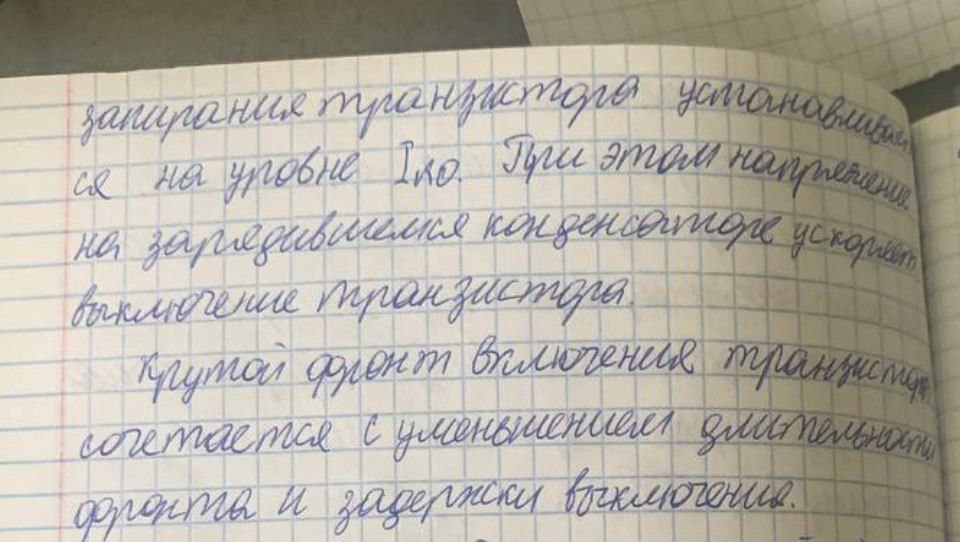 запирания транзистора устанавливает
ся на уровне Iко. При этом напряжение
на зарядившемся конденсаторе ускоряет
выключение транзистора.
Крутой фронт включения транзистора
сочетается с уменьшением длительности
фронта и задержки выключения.